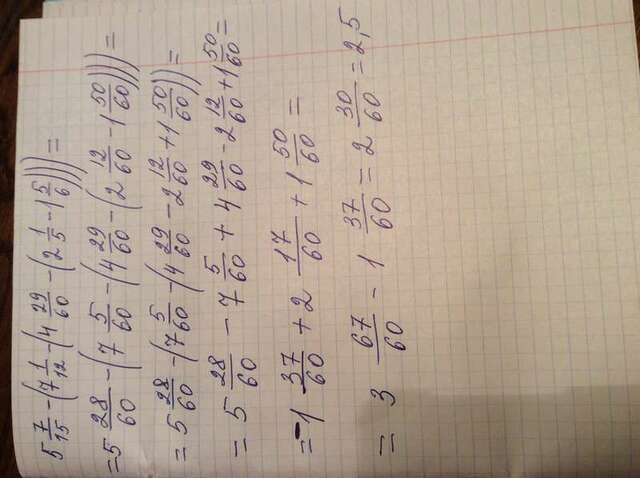 5 7/15 - (7 1/12 - (4 29/60 - (2 1/5 - 1 5/6))) =
= 5 28/60 - (7 5/60 - (4 29/60 - (2 12/60 - 1 50/60))) =
= 5 28/60 - (7 5/60 - (4 29/60 - 2 12/60 + 1 50/60)) =
= 5 28/60 - 7 5/60 + 4 29/60 - 2 12/60 + 1 50/60 =
= -1 37/60 + 2 17/60 + 1 50/60 =
= 3 67/60 - 1 37/60 = 2 30/60 = 2,5